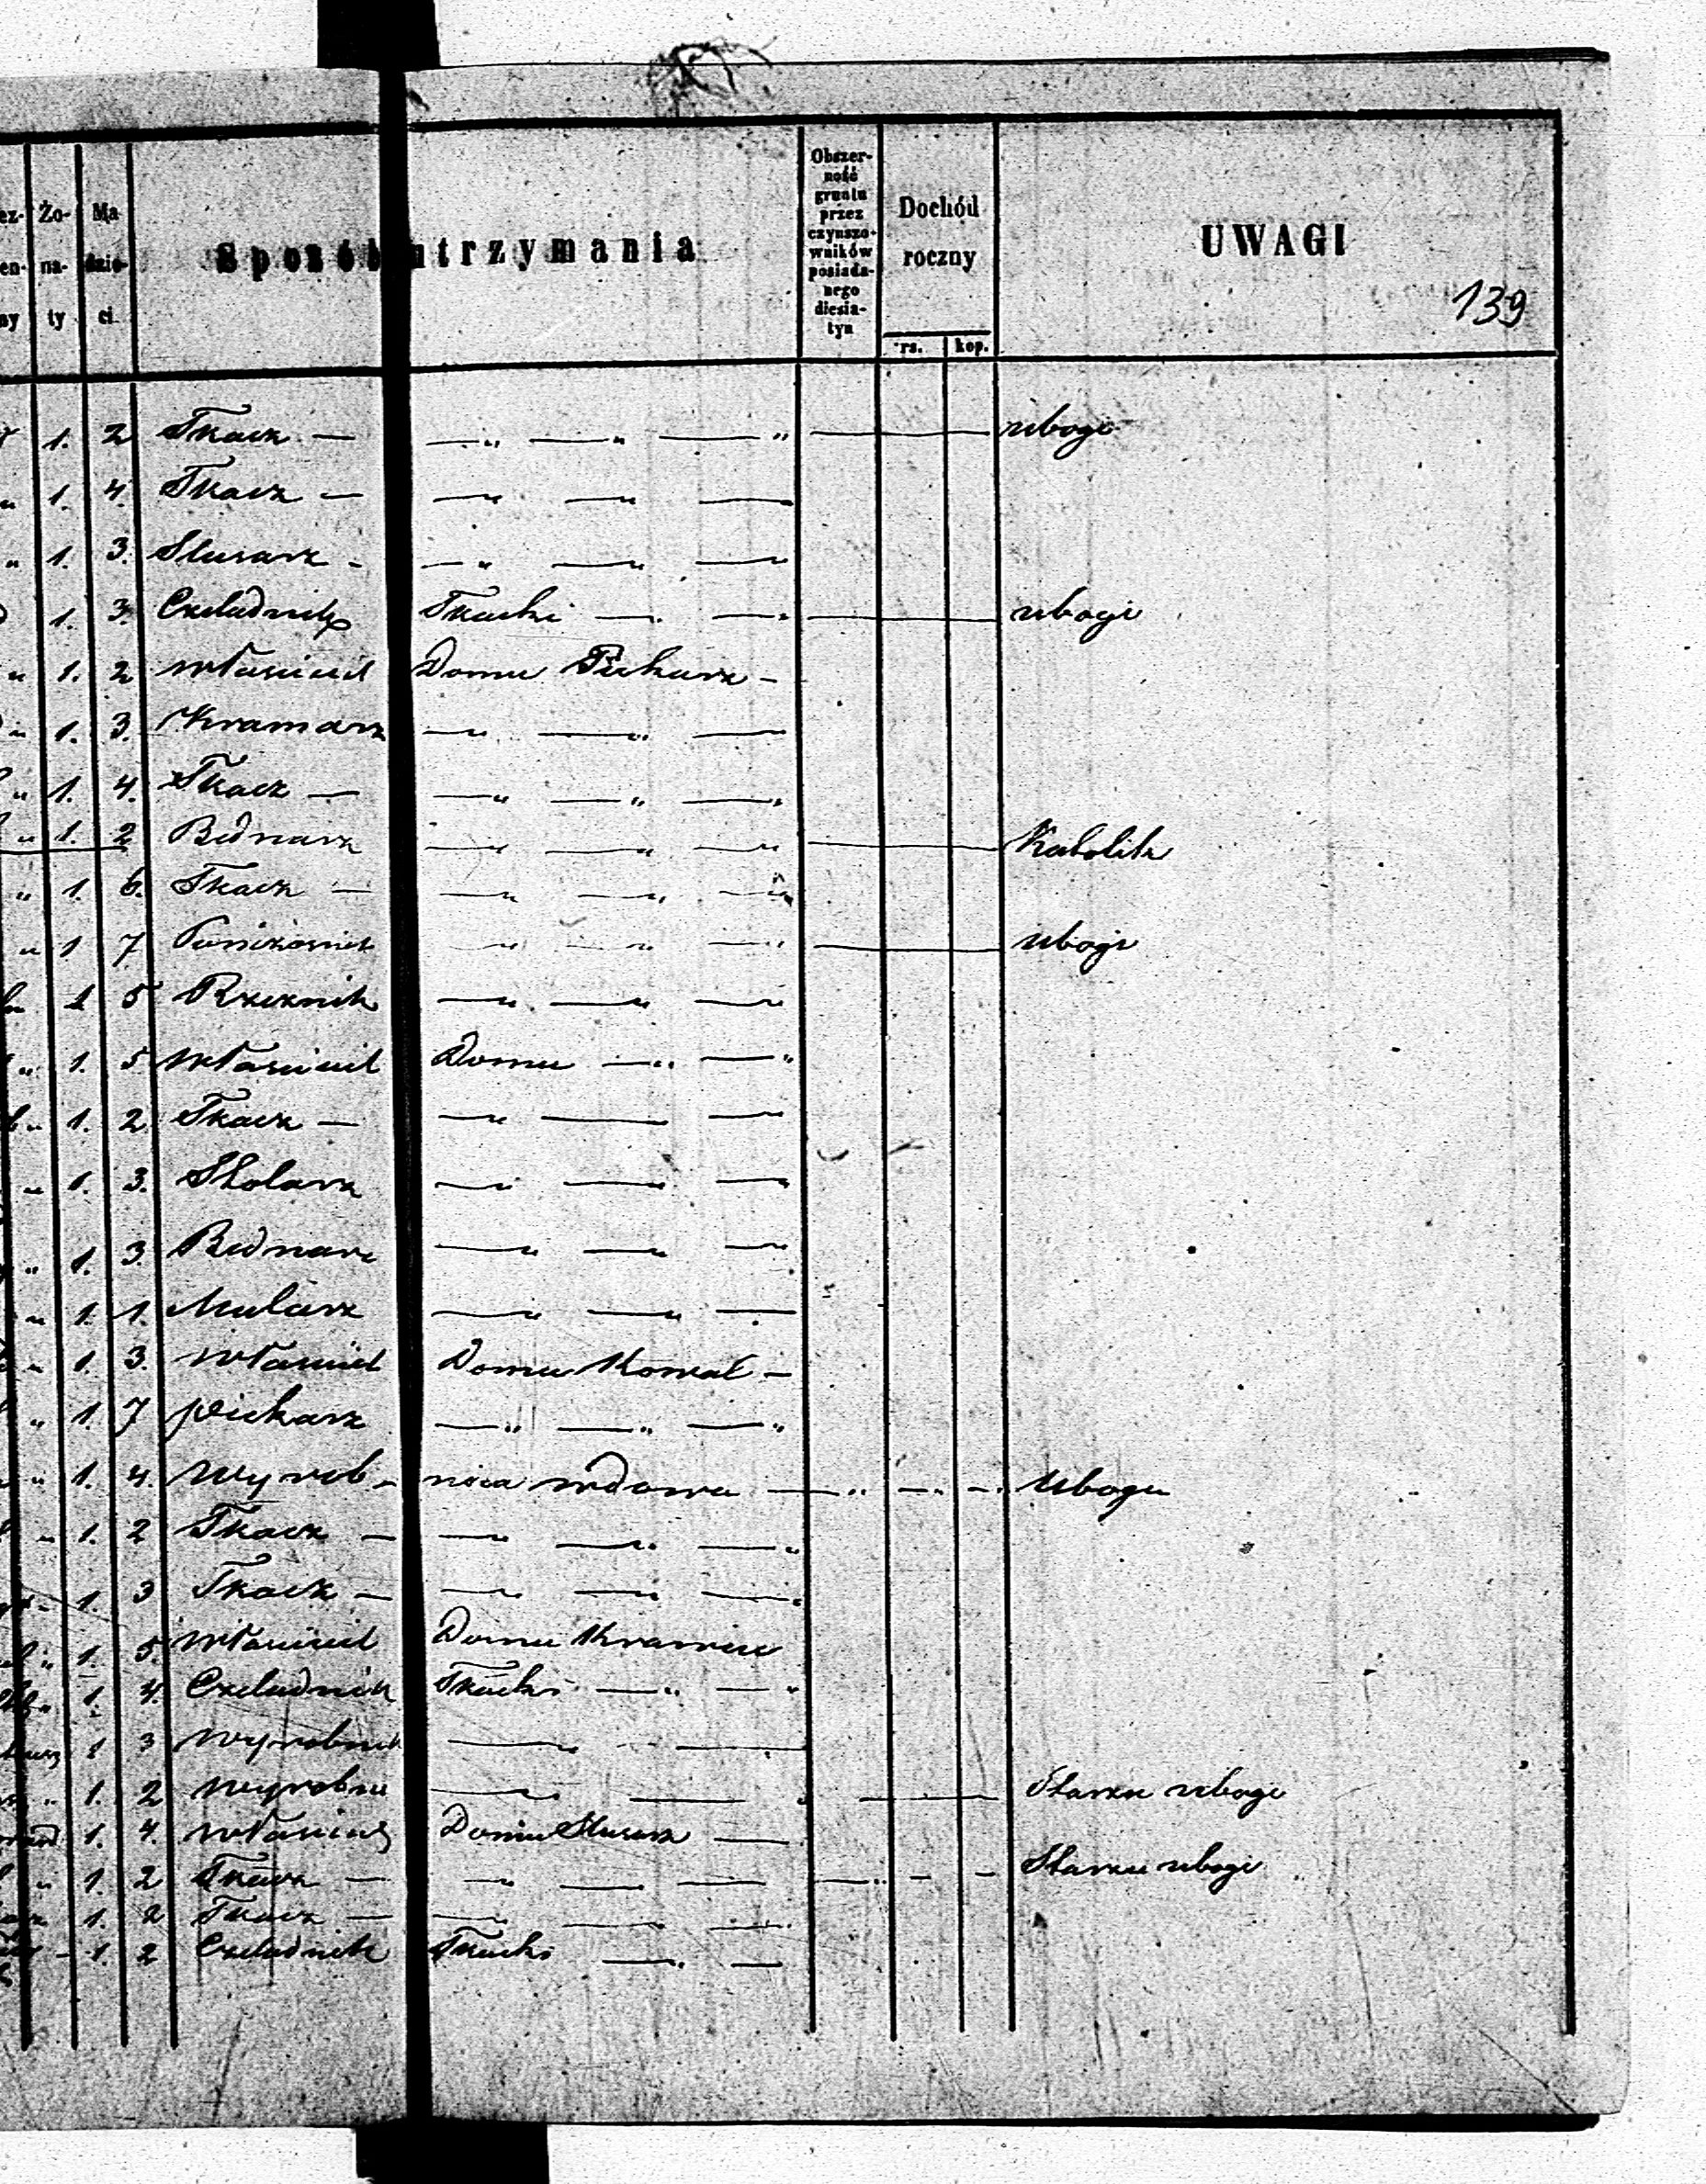 ez- Żo- Ma Sposób utrzymania Obszer-ność gruntu przez czynszo-wników posiada-nego diesia-tyn Dochód roczny UWAGI
en- na- dzie-
ny ty ci
rs. kop.
139
1. 2 Tkacz — ubogi
1. 4. Tkacz —
1. 3. Slusarz -
1. 3. Czeladnik Tkacki — ubogi
1. 2 właściciel Domu Piekarz -
1. 3. Kramarz
1. 4. Tkacz —
1. 2 Bednarz Katolik
1. 6. Tkacz —
1 7 ubogi
1 5 Rzeznik
1. 5 właściciel Domu
1. 2 Tkacz —
1. 3. Stolarz
1. 3. Bednarz
1. 1. Mularz
1. 3. właściciel Domu Kowal -
1. 7 piekarz
1. 4. wyrob- nica wdowa Uboga
1. 2 Tkacz —
1. 3 Tkacz —
1. 5. właściciel Domu Krawiec
1. 4. Czeladnik Tkacki
1 3 wyrobnik
1. 2 wyrobni Starzec ubogi
1. 4. właściciel Domu Slusarz —
1. 2 Tkacz — Starzec ubogi
1. 2 Tkacz —
1. 2 Czeladnik Tkacki